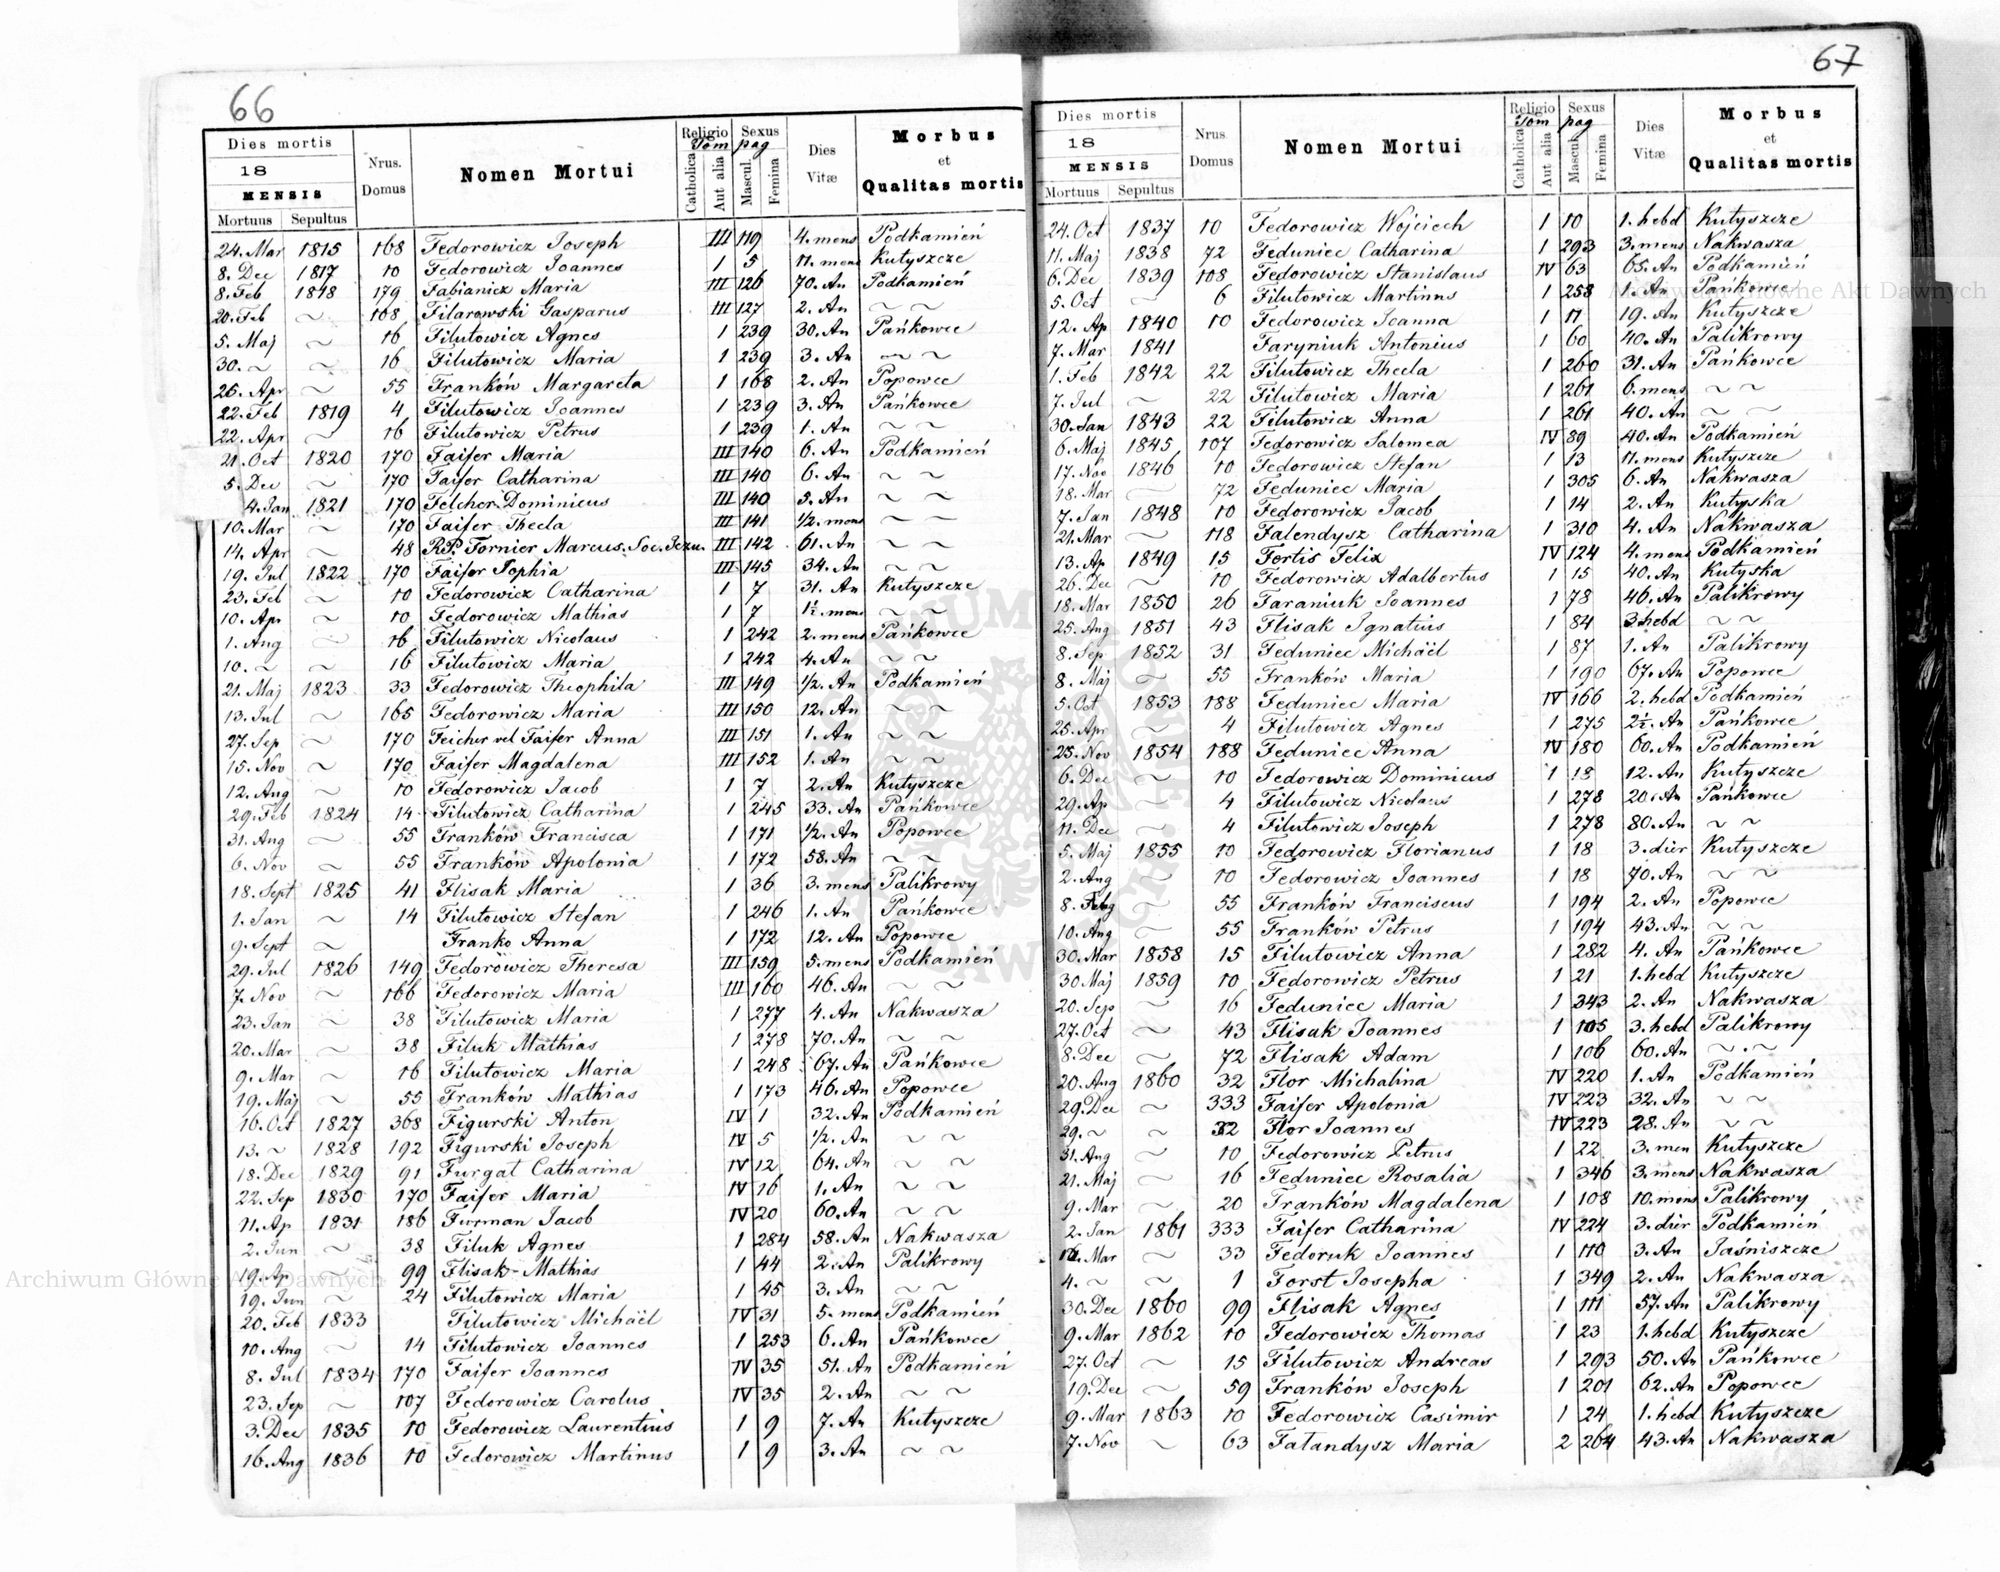 66
Dies mortis
18
MENSIS
Mortuus Sepultus
Nrus. Domus
Nomen Mortui
Religio Sexus
Tom pag
Catholica Aut alia Mascul. Femina
Dies Vitæ
Morbus
et
Qualitas mortis
24. Mar 1815 168 Fedorowicz Joseph III 119 4. mens Podkamień
8. Dec 1817 10 Fedorowicz Joannes 1 5 11. mens Kutyszcze
8. Feb 1848 179 Fabianicz Maria III 126 70. An Podkamień
20. Feb ~ 108 Filarowski Gasparus III 127 2. An ~ ~
5. Maj ~ 16 Filutowicz Agnes 1 239 30. An Pańkowce
30. ~ ~ 16 Filutowicz Maria 1 239 3. An ~ ~
26. Apr ~ 55 Franków Margareta 1 168 2. An Popowce
22. Feb 1819 4 Filutowicz Joannes 1 239 3. An Pańkowce
22. Apr ~ 16 Filutowicz Petrus 1 239 1. An ~ ~
21. Oct 1820 170 Faifer Maria III 140 6. An Podkamień
5. Dec ~ 170 Faifer Catharina III 140 6. An ~ ~
4. Jan 1821 170 Felcher Dominicus III 140 5. An ~ ~
10. Mar ~ 170 Faifer Thecla III 141 1/2. mens ~ ~
14. Apr ~ 48 RP. Fornier Marcus. Soc. Jezu. III 142 61. An ~ ~
19. Jul 1822 170 Faifer Sophia III 145 34. An ~ ~
23. Feb ~ 10 Fedorowicz Catharina 1 7 31. An Kutyszcze
10. Apr ~ 10 Fedorowicz Mathias 1 7 1½. mens ~ ~
1. Aug ~ 16 Filutowicz Nicolaus 1 242 2. mens Pańkowce
10. ~ ~ 16 Filutowicz Maria 1 242 4. An ~ ~
21. Maj 1823 33 Fedorowicz Theophila III 149 1/2. An Podkamień
13. Jul ~ 165 Fedorowicz Maria III 150 12. An ~ ~
27. Sep ~ 170 Feicher vel Faifer Anna III 151 1. An ~ ~
15. Nov ~ 170 Faifer Magdalena III 152 1. An ~ ~
12. Aug ~ 10 Fedorowicz Jacob 1 7 2. An Kutyszcze
29. Feb 1824 14 Filutowicz Catharina 1 245 33. An Pańkowce
31. Aug ~ 55 Franków Francisca 1 171 1/2. An Popowce
6. Nov ~ 55 Franków Apolonia 1 172 58. An ~ ~
18. Sept 1825 41 Flisak Maria 1 36 3. mens Palikrowy
1. Jan ~ 14 Filutowicz Stefan 1 246 1. An Pańkowce
9. Sept ~ Franko Anna 1 172 12. An Popowce
29. Jul 1826 149 Fedorowicz Theresa III 159 5. mens Podkamień
7. Nov ~ 166 Fedorowicz Maria III 160 46. An ~ ~
23. Jan ~ 38 Filutowicz Maria 1 277 4. An Nakwasza
20. Mar ~ 38 Filuk Mathias 1 278 70. An ~ ~
9. Mar ~ 16 Filutowicz Maria 1 248 67. An Pańkowce
19. Maj ~ 55 Franków Mathias 1 173 46. An Popowce
16. Oct 1827 368 Figurski Anton IV 1 32. An Podkamień
13. ~ 1828 192 Figurski Joseph IV 5 1/2. An ~ ~
18. Dec 1829 91 Furgat Catharina IV 12 64. An ~ ~
22. Sep 1830 170 Faifer Maria IV 16 1. An ~ ~
11. Ap 1831 186 Furman Jacob IV 20 60. An ~ ~
2. Jun ~ 38 Filuk Agnes 1 284 58. An Nakwasza
19. Ap ~ 99 Flisak Mathias 1 44 2. An Palikrowy
19. Jun ~ 24 Filutowicz Maria 1 45 3. An ~ ~
20. Feb 1833 Filutowicz Michäel IV 31 5. mens Podkamień
10. Aug ~ 14 Filutowicz Joannes 1 253 6. An Pańkowce
8. Jul 1834 170 Faifer Joannes IV 35 51. An Podkamień
23. Sep ~ 107 Fedorowicz Carolus IV 35 2. An ~ ~
3. Dec 1835 10 Fedorowicz Laurentius 1 9 7. An Kutyszcze
16. Aug 1836 10 Fedorowicz Martinus 1 9 3. An ~ ~
67
Dies mortis
18
MENSIS
Mortuus Sepultus
Nrus. Domus
Nomen Mortui
Religio Sexus
Tom pag
Catholica Aut alia Mascul. Femina
Dies Vitæ
Morbus
et
Qualitas mortis
24. Oct 1837 10 Fedorowicz Wojciech 1 10 1. hebd Kutyszcze
11. Maj 1838 72 Feduniec Catharina 1 293 3. mens Nakwasza
6. Dec 1839 108 Fedorowicz Stanislaus IV 63 65. An Podkamień
5. Oct ~ 6 Filutowicz Martinus 1 258 1. An Pańkowce
12. Ap 1840 10 Fedorowicz Joanna 1 11 19. An Kutyszcze
7. Mar 1841 Faryniuk Antonius 1 60 40. An Palikrowy
1. Feb 1842 22 Filutowicz Thecla 1 260 31. An Pańkowce
7. Jul ~ 22 Filutowicz Maria 1 261 6. mens ~ ~
30. Jan 1843 22 Filutowicz Anna 1 261 40. An ~ ~
6. Maj 1845 107 Fedorowicz Salomea IV 89 40. An Podkamień
17. Nov 1846 10 Fedorowicz Stefan 1 13 11. mens Kutyszcze
18. Mar ~ 72 Feduniec Maria 1 305 6. An Nakwasza
7. Jan 1848 10 Fedorowicz Jacob 1 14 2. An Kutyska
21. Mar ~ 118 Falendysz Catharina 1 310 4. An Nakwasza
13. Ap 1849 15 Fortis Felix IV 124 4. mens Podkamień
26. Dec ~ 10 Fedorowicz Adalbertus 1 15 40. An Kutyska
18. Mar 1850 26 Faraniuk Joannes 1 78 46. An Palikrowy
25. Aug 1851 43 Flisak Ignatius 1 84 3 hebd ~ ~
8. Sep 1852 31 Feduniec Michäel 1 87 1. An Palikrowy
8. Maj ~ 55 Franków Maria 1 190 67. An Popowce
5. Oct 1853 188 Feduniec Maria IV 166 2. hebd Podkamień
25. Apr ~ 4 Filutowicz Agnes 1 275 2½. An Pańkowce
25. Nov 1854 188 Feduniec Anna IV 180 60. An Podkamień
6. Dec ~ 10 Fedorowicz Dominicus 1 18 12. An Kutyszcze
29. Ap ~ 4 Filutowicz Nicolaus 1 278 20. An Pańkowce
11. Dec ~ 4 Filutowicz Joseph 1 278 80. An ~ ~
5. Maj 1855 10 Fedorowicz Florianus 1 18 3. dier Kutyszcze
2. Aug ~ 10 Fedorowicz Joannes 1 18 70. An ~ ~
8. ~ 55 Franków Franciscus 1 194 2. An Popowce
10. Aug ~ 55 Franków Petrus 1 194 43. An ~ ~
30. Mar 1858 15 Filutowicz Anna 1 282 4. An Pańkowce
30. Maj 1859 10 Fedorowicz Petrus 1 21 1. hebd Kutyszcze
20. Sep ~ 16 Feduniec Maria 1 343 2. An Nakwasza
27. Oct ~ 43 Flisak Joannes 1 105 3. hebd Palikrowy
8. Dec ~ 72 Flisak Adam 1 106 60. An ~ ~
20. Aug 1860 32 Flor Michalina IV 220 1. An Podkamień
29. Dec ~ 333 Faifer Apolonia IV 223 32. An ~ ~
29. ~ ~ 32 Flor Joannes IV 223 28. An ~ ~
31. Aug ~ 10 Fedorowicz Petrus 1 22 3. men Kutyszcze
21. Maj ~ 16 Feduniec Rosalia 1 346 3. mens Nakwasza
9. Mar ~ 20 Franków Magdalena 1 108 10. mens Palikrowy
2. Jan 1861 333 Faifer Catharina IV 224 3. dier Podkamień
Mar ~ 33 Fedoruk Joannes 1 110 3. An Jaśniszcze
4. ~ ~ 1 Forst Josepha 1 349 2. An Nakwasza
30. Dec 1860 99 Flisak Agnes 1 111 57. An Palikrowy
9. Mar 1862 10 Fedorowicz Thomas 1 23 1. hebd Kutyszcze
27. Oct ~ 15 Filutowicz Andreas 1 293 50. An Pańkowce
19. Dec ~ 59 Franków Joseph 1 201 62. An Popowce
9. Mar 1863 10 Fedorowicz Casimir 1 24 1. hebd Kutyszcze
7. Nov ~ 63 Fatandysz Maria 2 264 43. An Nakwasza
Archiwum Główne Akt Dawnych
Archiwum Główne Akt Dawnych